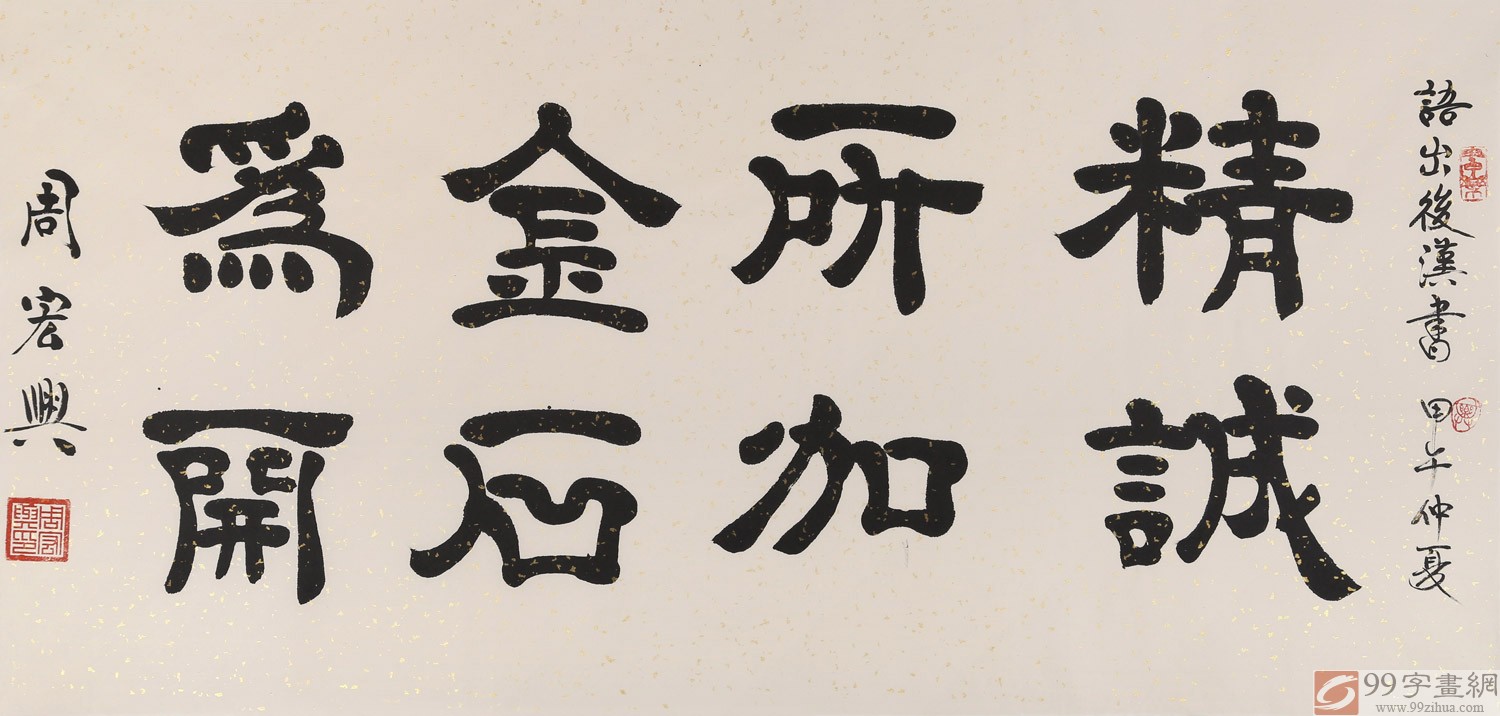 語出後漢書 甲午仲夏
精誠
所加
金石
為開
周宏興
周宏興印
99字畫網
www.99zihua.com